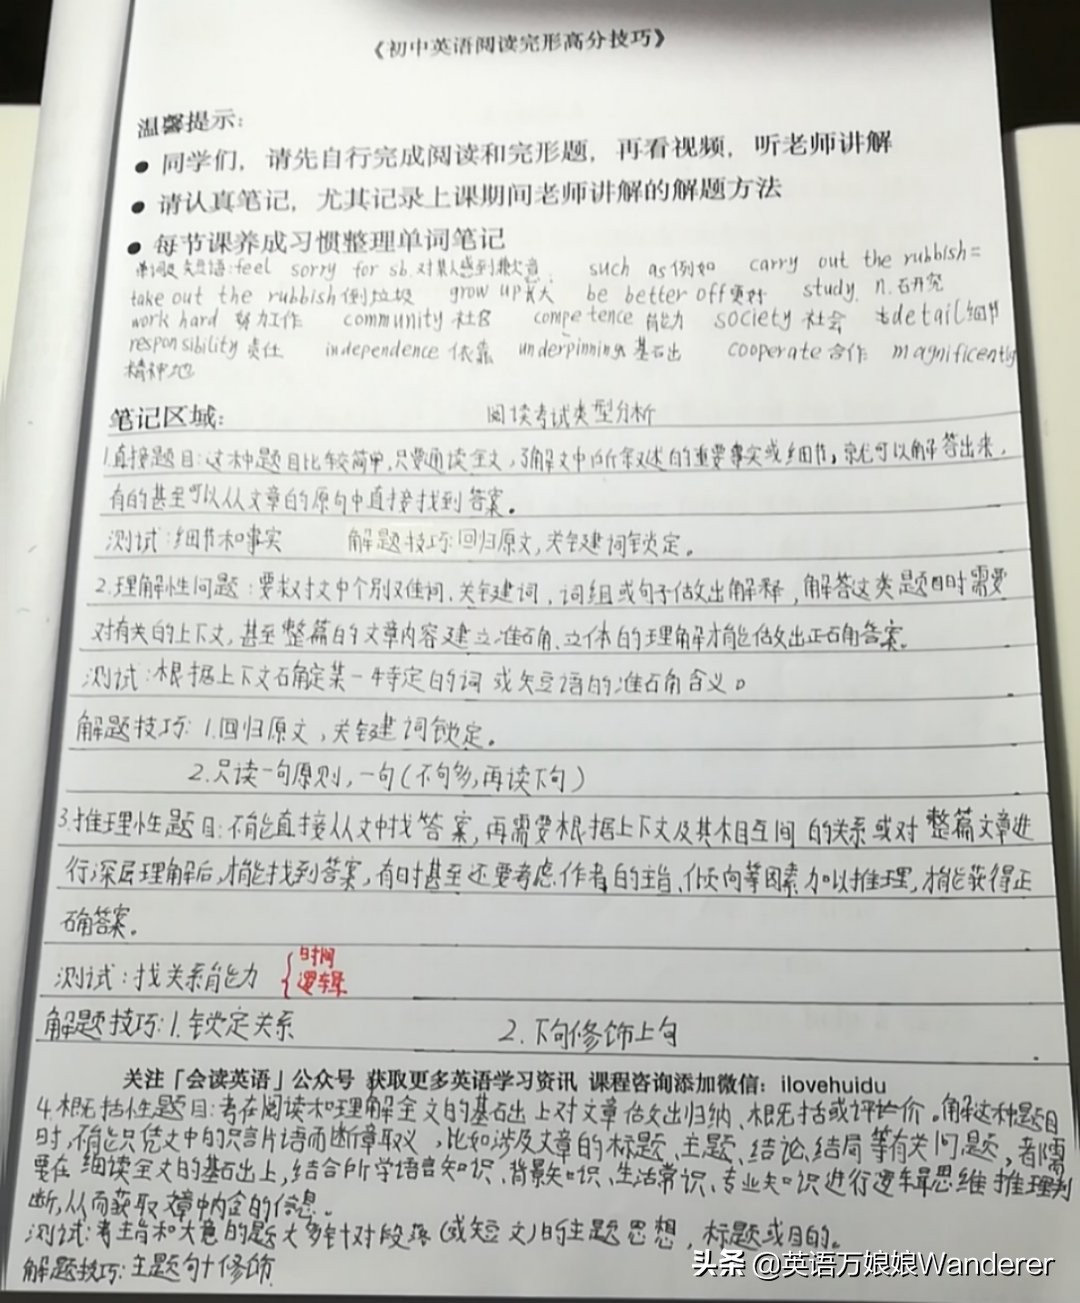 《初中英语阅读完形高分技巧》
温馨提示:
● 同学们，请先自行完成阅读和完形题，再看视频，听老师讲解
● 请认真笔记，尤其记录上课期间老师讲解的解题方法
● 每节课养成习惯整理单词笔记
单词及短语:feel sorry for sb.对某人感到歉意 such as例如 carry out the rubbish=
take out the rubbish倒垃圾 grow up长大 be better off更好 study n.研究
work hard 努力工作 community 社区 competence 能力 society 社会 detail细节
responsibility 责任 independence 依靠 underpinning 基石出 cooperate 合作 magnificently
精神地
笔记区域: 阅读考试类型分析
1.直接题目:这种题目比较简单,只要通读全文,了解文中所叙述的重要事实或细节,就可以解答出来,
有的甚至可以从文章的原句中直接找到答案。
测试:细节和事实 解题技巧:回归原文,关键建词锁定。
2.理解性问题:要求对文中个别难词、关键建词、词组或句子做出解释,解答这类题目时需要
对有关的上下文,甚至整篇的文章内容建立准确、立体的理解才能做出正确答案。
测试:根据上下文确定某一特定的词或短语的准确含义。
解题技巧:1.回归原文,关键建词锁定。
2.只读一句原则,一句(不句多,再读下句)
3.推理性题目:不能直接从文中找答案,再需要根据上下文及其相互间的关系或对整篇文章进
行深层理解后,才能找到答案,有时甚至还要考虑作者的主旨、倾向等因素加以推理,才能获得正
确答案。
测试:找关系能力 {时间
逻辑
解题技巧:1.锁定关系 2.下句修饰上句
关注「会读英语」公众号 获取更多英语学习资讯 课程咨询添加微信：ilovehuidu
4.概括性题目:考在阅读和理解全文的基础上对文章做出归纳、概括或评价。解这种题目
时,不能只凭文中的只言片语而断章取义,比如涉及文章的标题、主题、结论、结局等有关问题,都需
要在细读全文的基础上,结合所学语言知识、背景知识、生活常识、专业知识进行逻辑思维推理判
断,从而获取文章中内含的信息。
测试:考主旨和大意的题大多针对段落(或短文)的主题思想,标题或目的。
解题技巧:主题句+修饰
头条 @英语万娘娘Wanderer